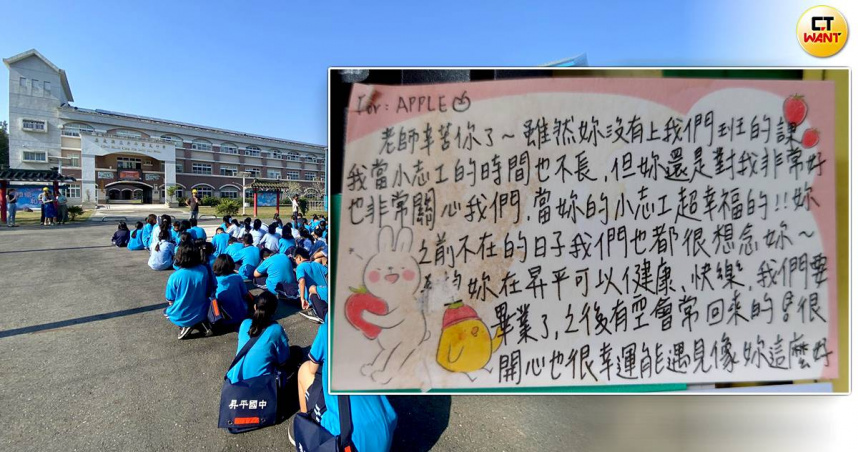 CT
WANT
For: APPLE
老師辛苦你了～雖然妳沒有上我們班的課
我當小志工的時間也不長,但妳還是對我非常好
也非常關心我們,當妳的小志工超幸福的!!妳
之前不在的日子我們也都很想念妳～
妳在昇平可以健康、快樂,我們要
畢業了,之後有空會常回來的 很
開心也很幸運能遇見像妳這麼好
昇平國中